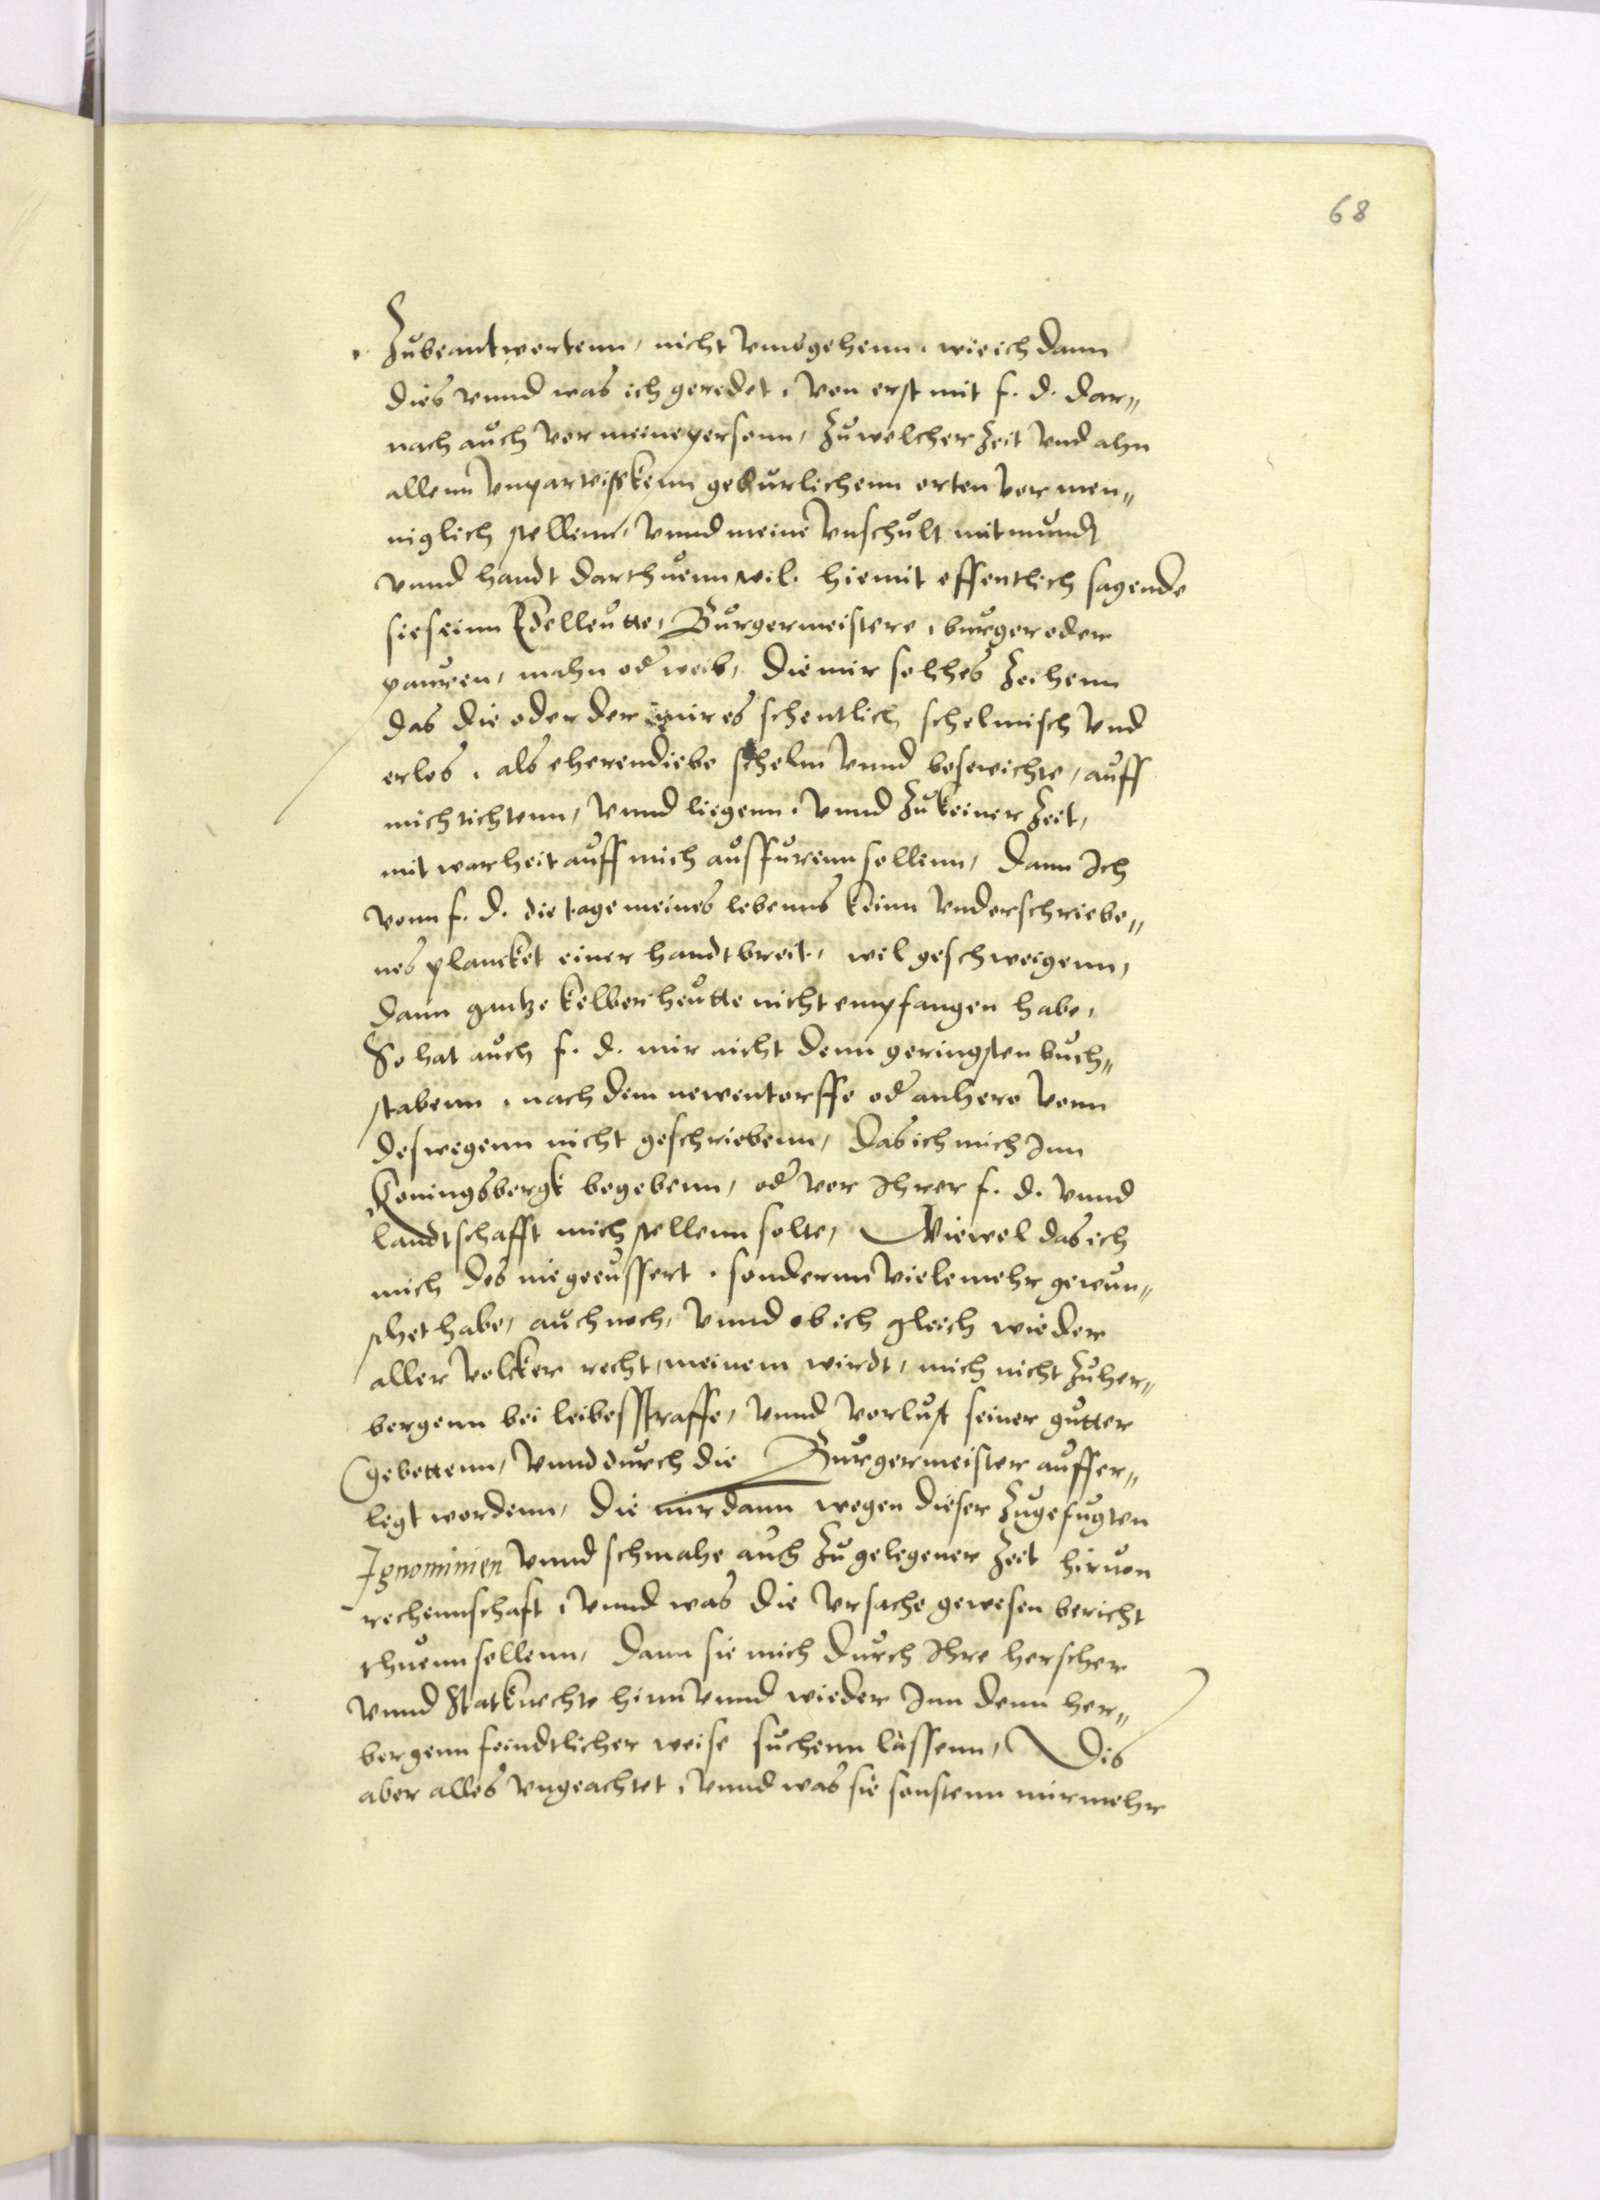 68
Zubeantwortenn, nicht vmbgehenn, wie ich dann
dies vnnd was ich geredet, von erst mit f. d. dar„
nach auch vor meine person, zu welcher zeit vnd ahn
allenn vnpar geburlichenn orten vor men„
niglich stellenn, vnnd meine vnschult mit mundt
vnnd handt darthuenn wil. hiemit offentlich sagende
sie seinn Edelleutte, Burgermeistere, burger oder
pauren, mahn od weib, die mir solches zeihenn
das die oder der mir es schentlich schelmisch vnd
erlos, als eherendiebe schelm vnnd bosewichte, auff
mich tichtenn, vnnd liegenn, vnnd zu keiner zeit,
mit warheit auff mich ausfurenn sollenn, Dann Ich
vonn f. d. die tage meines lebenns keinn vnderschriebe„
nes plancket einer handtbreit, wil geschweigenn,
dann gantze kelberheutte nicht empfangen habe,
So hat auch f. d. mir nicht denn geringsten buch„
stabenn, nach dem newentorffe od anhero vonn
deswegenn nicht geschriebenn, das ich mich Inn
Koningsbergk begebenn, od vor Ihrer f. d. vnnd
landtschafft mich stellenn solte, Wiewol das ich
mich des nie geeussert, sondernn vielemehr gewun„
schet habe, auch noch, vnnd ob ich gleich wieder
aller volcker recht, meinem wirdt, mich nicht zuher„
bergenn bei leibesstraffe, vnnd vorlust seiner gutter
gebottenn, vnnd durch die Burgermeister auffer„
legt wordenn, die mir dann wegen dieser zugefugten
Ignominien vnnd schmahe auch zu gelegener zeit hiruon
rechennschaft, vnnd was die vrsache gewesen bericht
thuenn sollenn, Dann sie mich durch Ihre herscher
vnnd Statknechte hinn vnnd wieder Inn denn her„
bergenn feindtlicher weise suchenn lassenn, Dis
aber alles vngeachtet, vnnd was sie sonstenn mir mehr